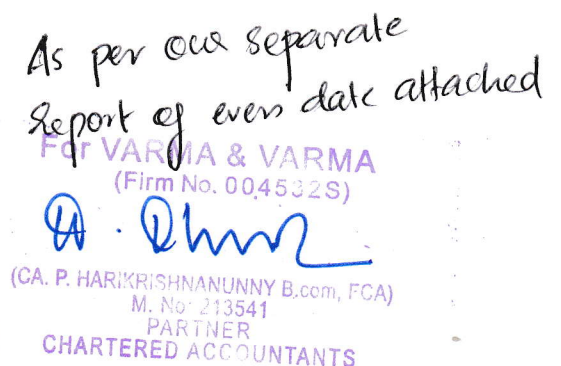 As per our separate
Report of even date attached
For VARMA & VARMA
(Firm No. 004532S)
(CA. P. HARIKRISHNANUNNY B.com, FCA)
M. No: 213541
PARTNER
CHARTERED ACCOUNTANTS